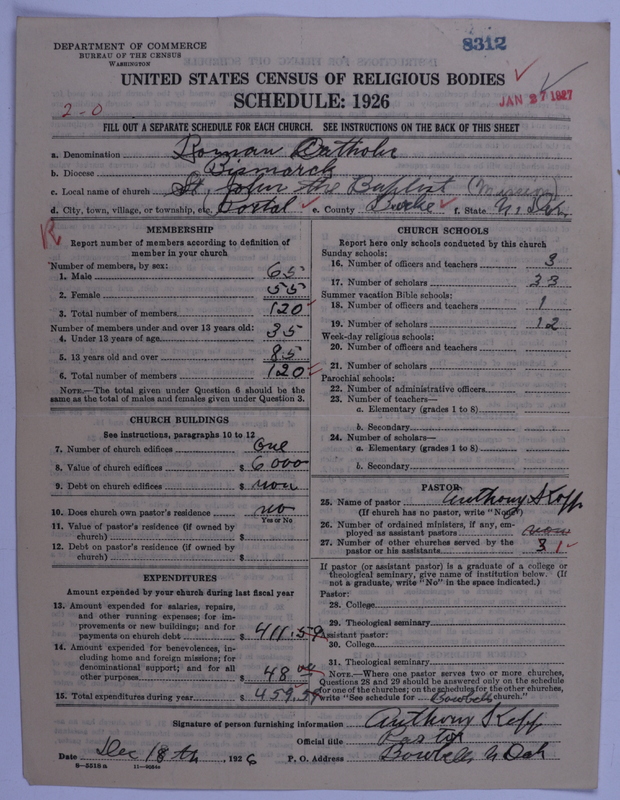 DEPARTMENT OF COMMERCE
BUREAU OF THE CENSUS
WASHINGTON
8312
UNITED STATES CENSUS OF RELIGIOUS BODIES
SCHEDULE: 1926
JAN 27 1927
2-0
FILL OUT A SEPARATE SCHEDULE FOR EACH CHURCH. SEE INSTRUCTIONS ON THE BACK OF THIS SHEET
a. Denomination Roman Catholic
b. Diocese Bismarck
c. Local name of church St. John the Baptist (Mission)
d. City, town, village, or township, etc. Portal e. County Burke f. State N. Dak.
R
MEMBERSHIP
Report number of members according to definition of member in your church
Number of members, by sex:
1. Male 65
2. Female 55
3. Total number of members 120
Number of members under and over 13 years old:
4. Under 13 years of age 35
5. 13 years old and over 85
6. Total number of members 120
NOTE.—The total given under Question 6 should be the
same as the total of males and females given under Question 3.
CHURCH BUILDINGS
See instructions, paragraphs 10 to 12
7. Number of church edifices One
8. Value of church edifices $ 6000
9. Debt on church edifices $ non
10. Does church own pastor's residence no
Yes or No
11. Value of pastor's residence (if owned by
church) $
12. Debt on pastor's residence (if owned by
church) $
EXPENDITURES
Amount expended by your church during last fiscal year
13. Amount expended for salaries, repairs,
and other running expenses; for im-
provements or new buildings; and for
payments on church debt $ 411.59
14. Amount expended for benevolences, in-
cluding home and foreign missions; for
denominational support; and for all
other purposes $ 48.00
15. Total expenditures during year $ 459.59
CHURCH SCHOOLS
Report here only schools conducted by this church
Sunday schools:
16. Number of officers and teachers 3
17. Number of scholars 33
Summer vacation Bible schools:
18. Number of officers and teachers 1
19. Number of scholars 12
Week-day religious schools:
20. Number of officers and teachers
21. Number of scholars
Parochial schools:
22. Number of administrative officers
23. Number of teachers—
a. Elementary (grades 1 to 8)
b. Secondary
24. Number of scholars—
a. Elementary (grades 1 to 8)
b. Secondary
PASTOR
25. Name of pastor Anthony S Kopp
(If church has no pastor, write "No")
26. Number of ordained ministers, if any, em-
ployed as assistant pastors non
27. Number of other churches served by the
pastor or his assistants 3 1
If pastor (or assistant pastor) is a graduate of a college or
theological seminary, give name of institution below. (If
not a graduate, write "No" in the space indicated.)
Pastor:
28. College
29. Theological seminary
Assistant pastor:
30. College
31. Theological seminary
NOTE.—Where one pastor serves two or more churches,
Questions 28 and 29 should be answered only on the schedule
for one of the churches; on the schedules for the other churches,
write "See schedule for Bowbells church."
Signature of person furnishing information Anthony S Kopp
Official title Pastor
Date Dec 18 th, 1926 P. O. Address Bowbells N Dak
8—5518 a 11—9054a